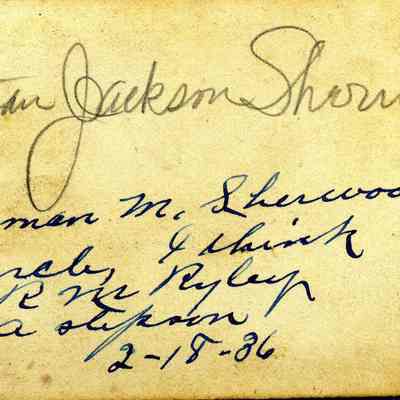 Jackson Sherw
man M. Sherwoo
I think
R M Ryley
a stepson
2-18-36